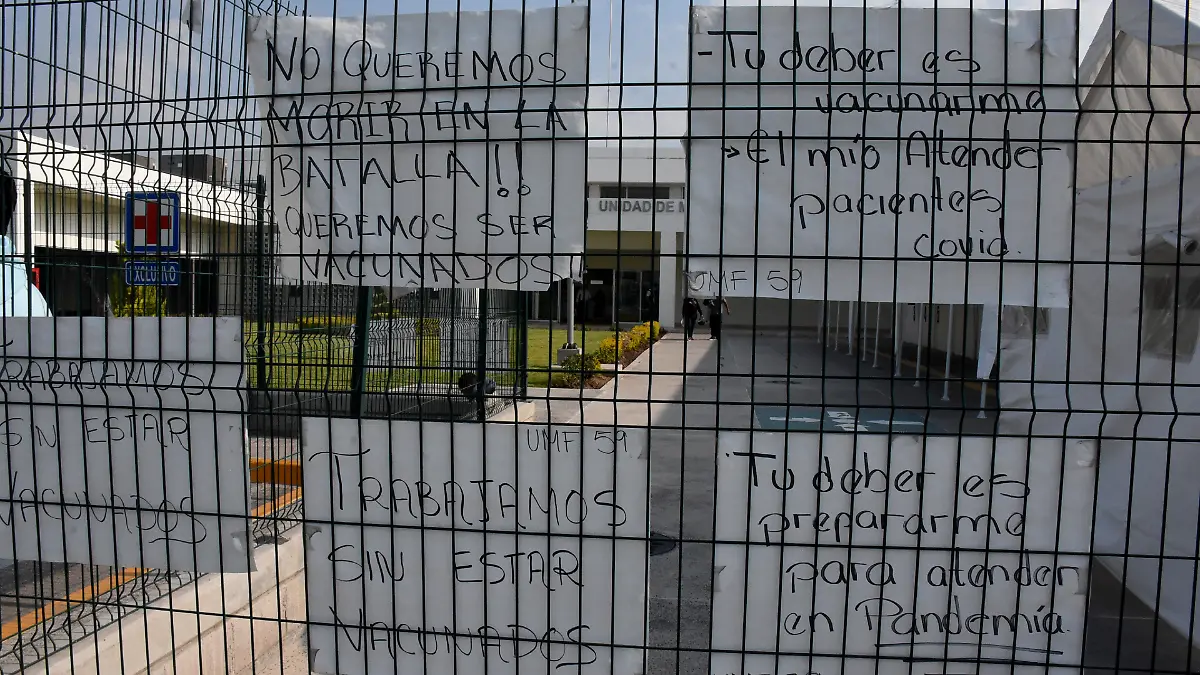 NO QUEREMOS
MORIR EN LA
BATALLA!!
QUEREMOS SER
VACUNADOS
- Tu deber es
vacunarme
→ El mío Atender
pacientes
covid.
UMF 59
UNIDAD DE
EXCLUSIVO
TRABAJAMOS
SIN ESTAR
VACUNADOS
UMF 59
TRABAJAMOS
SIN ESTAR
VACUNADOS
Tu deber es
prepararme
para atender
en Pandemía.